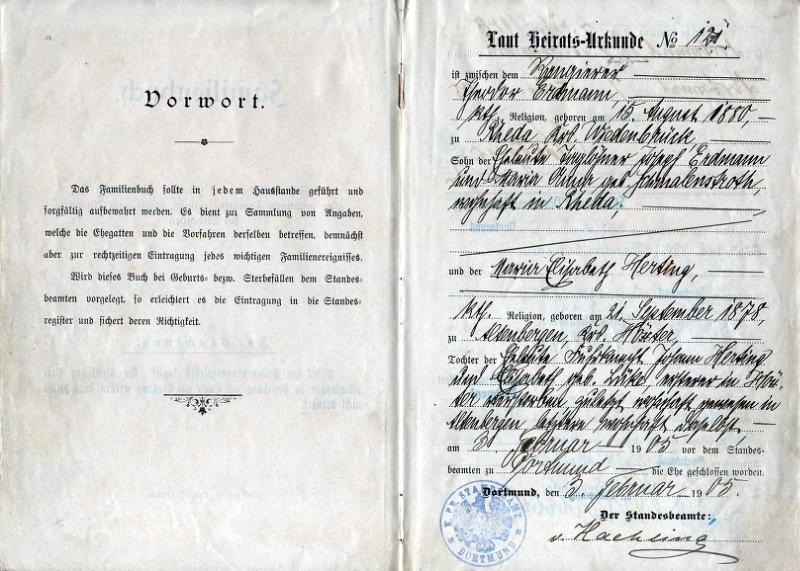 Vorwort.
Das Familienbuch sollte in jedem Hausstande geführt und
sorgfältig aufbewahrt werden. Es dient zur Sammlung von Angaben,
welche die Ehegatten und die Vorfahren derselben betreffen, demnächst
aber zur rechtzeitigen Eintragung jedes wichtigen Familienereignisses.
Wird dieses Buch bei Geburts- bezw. Sterbefällen dem Standes-
beamten vorgelegt, so erleichert es die Eintragung in die Standes-
register und sichert deren Richtigkeit.
Laut Heirats-Urkunde No 121
ist zwischen dem Rangierer
Theodor Erdmann,
kth. Religion, geboren am 15. August 1880,
zu Rheda, Krs. Wiedenbrück,
Sohn der Eheleute Taglöhner Josef Erdmann
und Maria geb. Schmalenstroth,
wohnhaft in Rheda,
und der Maria Elisabeth Herting,
kth. Religion, geboren am 21. September 1878,
zu Altenbergen, Krs. Höxter,
Tochter der Eheleute Johann Herting
und Elisabeth geb. Lüke, ersterer in Höx-
ter verstorben, zuletzt wohnhaft gewesen in
Altenbergen, letztere wohnhaft daselbst
am 3. Februar 1905 vor dem Standes-
beamten zu Dortmund die Ehe geschlossen worden.
Dortmund, den 3. Februar 1905.
Der Standesbeamte:
v. Haehling
DORTMUND